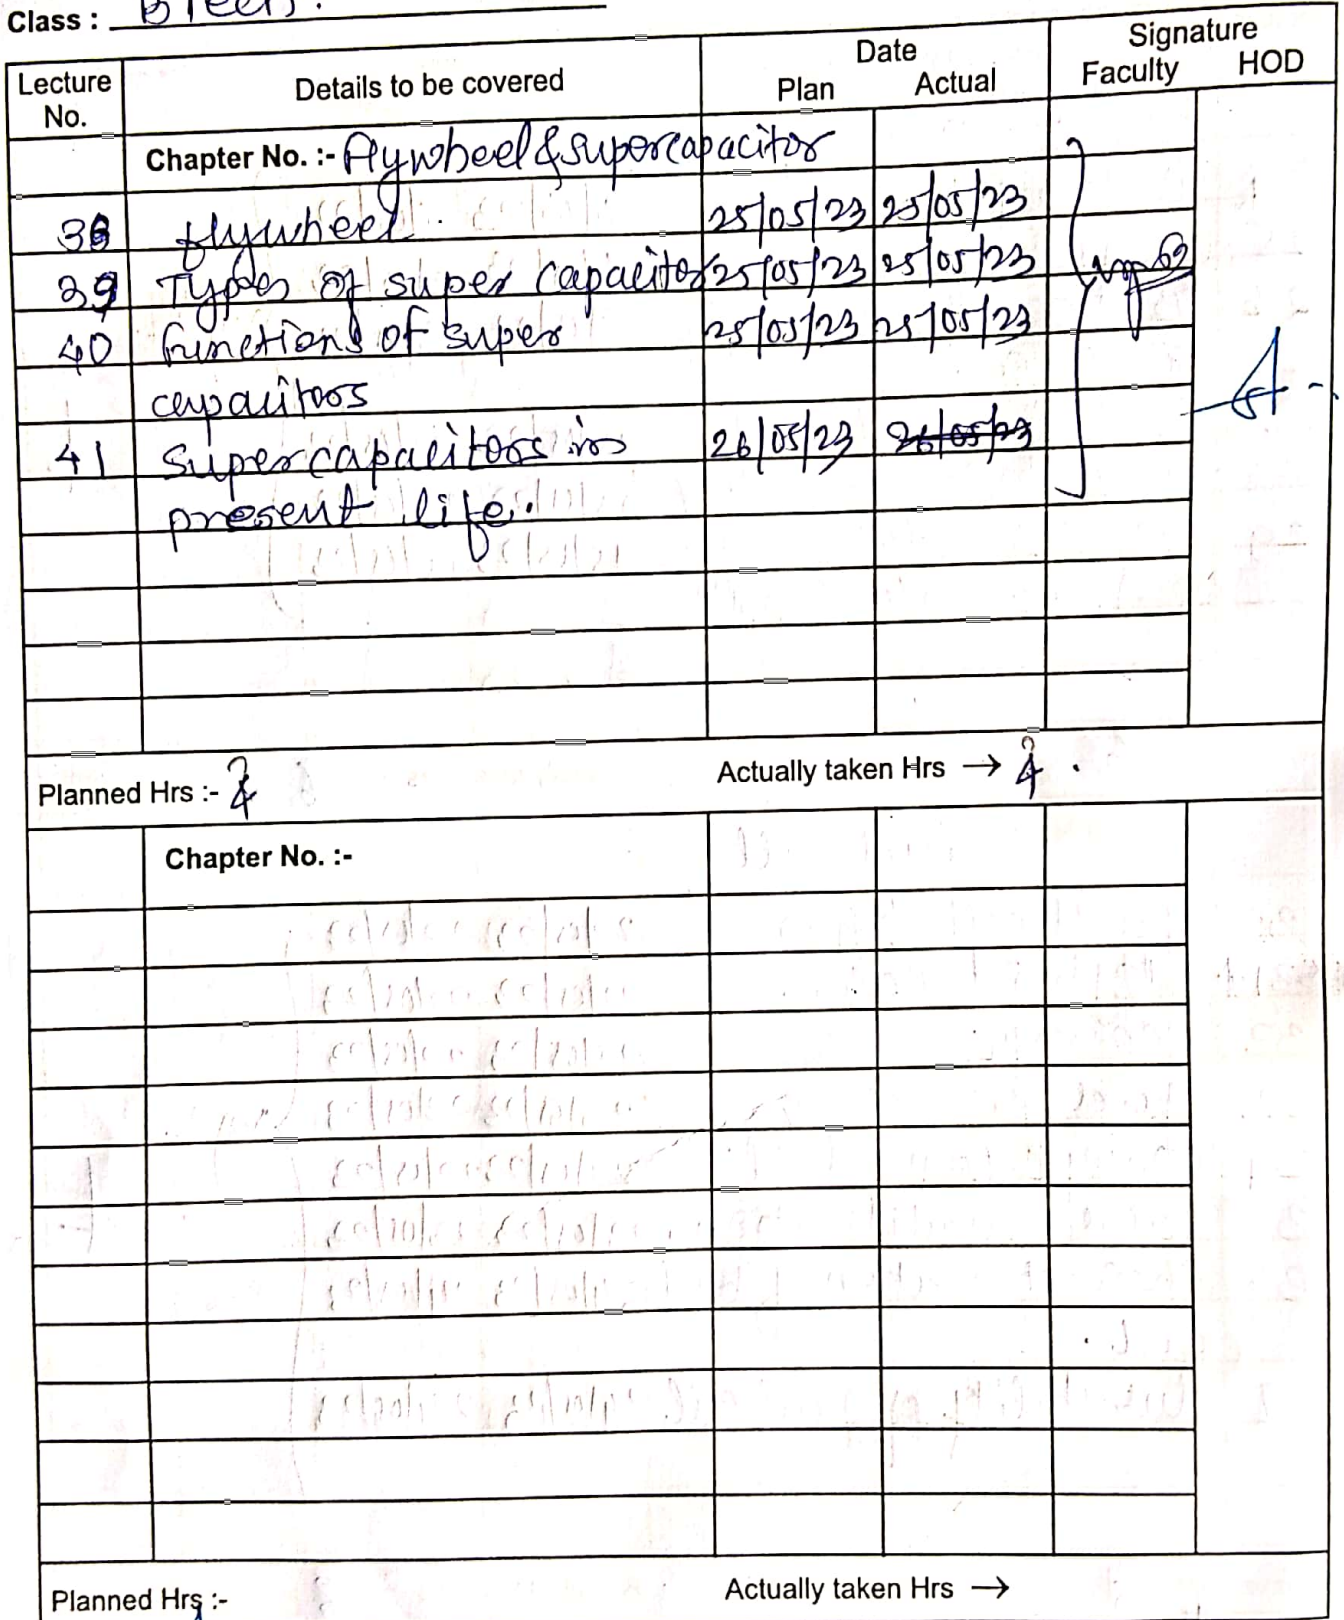 Class : B Tech.
Lecture No. Details to be covered Date Plan Actual Signature Faculty HOD
Chapter No. :- Flywheel & supercapacitor
38 flywheel. 25/05/23 25/05/23
39 Types of super capacitor 25/05/23 25/05/23
40 functions of super 25/05/23 25/05/23
capacitors
41 Supercapacitors in 26/05/23 26/05/23
present life.
Planned Hrs :- 4 Actually taken Hrs → 4.
Chapter No. :-
Planned Hrs :- Actually taken Hrs →